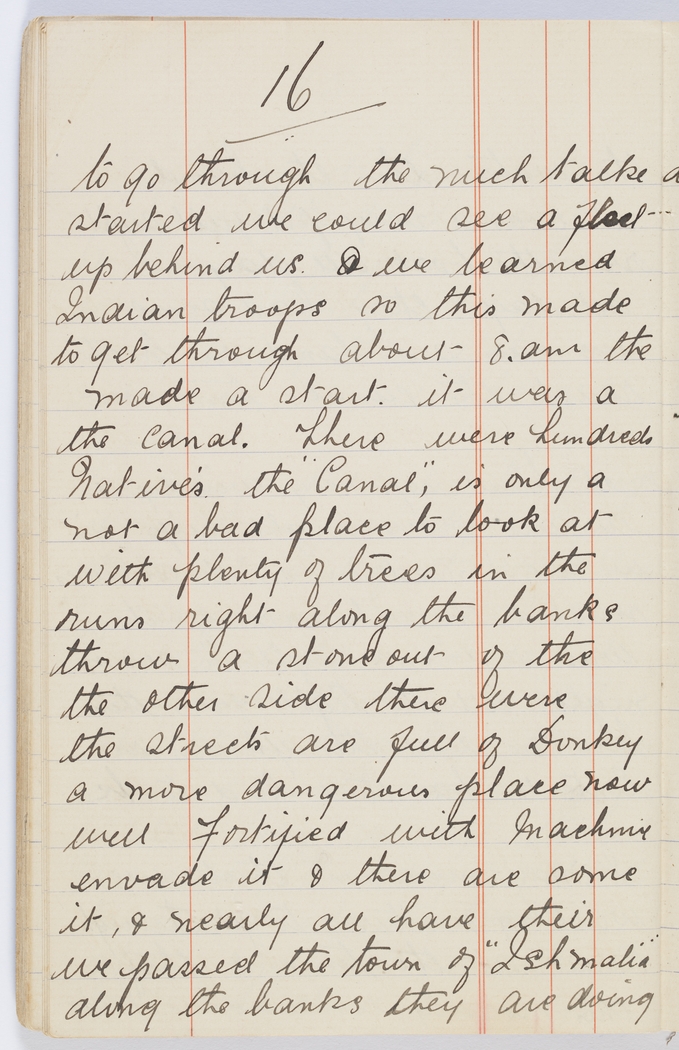 16
to go through the much talke d
started we could see a fleet
up behind us. & we learned
Indian troops so this made
to get through about 8.am the
made a start. it was a
the canal. There were hundreds
Native's. the "Canal", is only a
not a bad place to look at
with plenty of trees in the
runs right along the banks
throw a stone out of the
the other side there were
the streets are full of Donkey
a more dangerous place now
well fortified with Machine
envade it & there are some
it, & nearly all have their
we passed the town of "Ishmalia"
along the banks they are doing